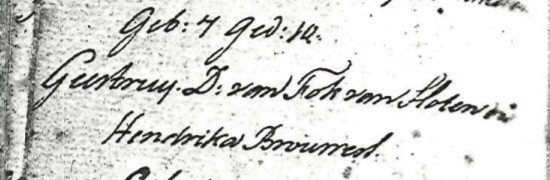 Geb: 4 Ged: 10.
Geertruy. D: van Fok van Sloten en
Hendrika Brouwer.